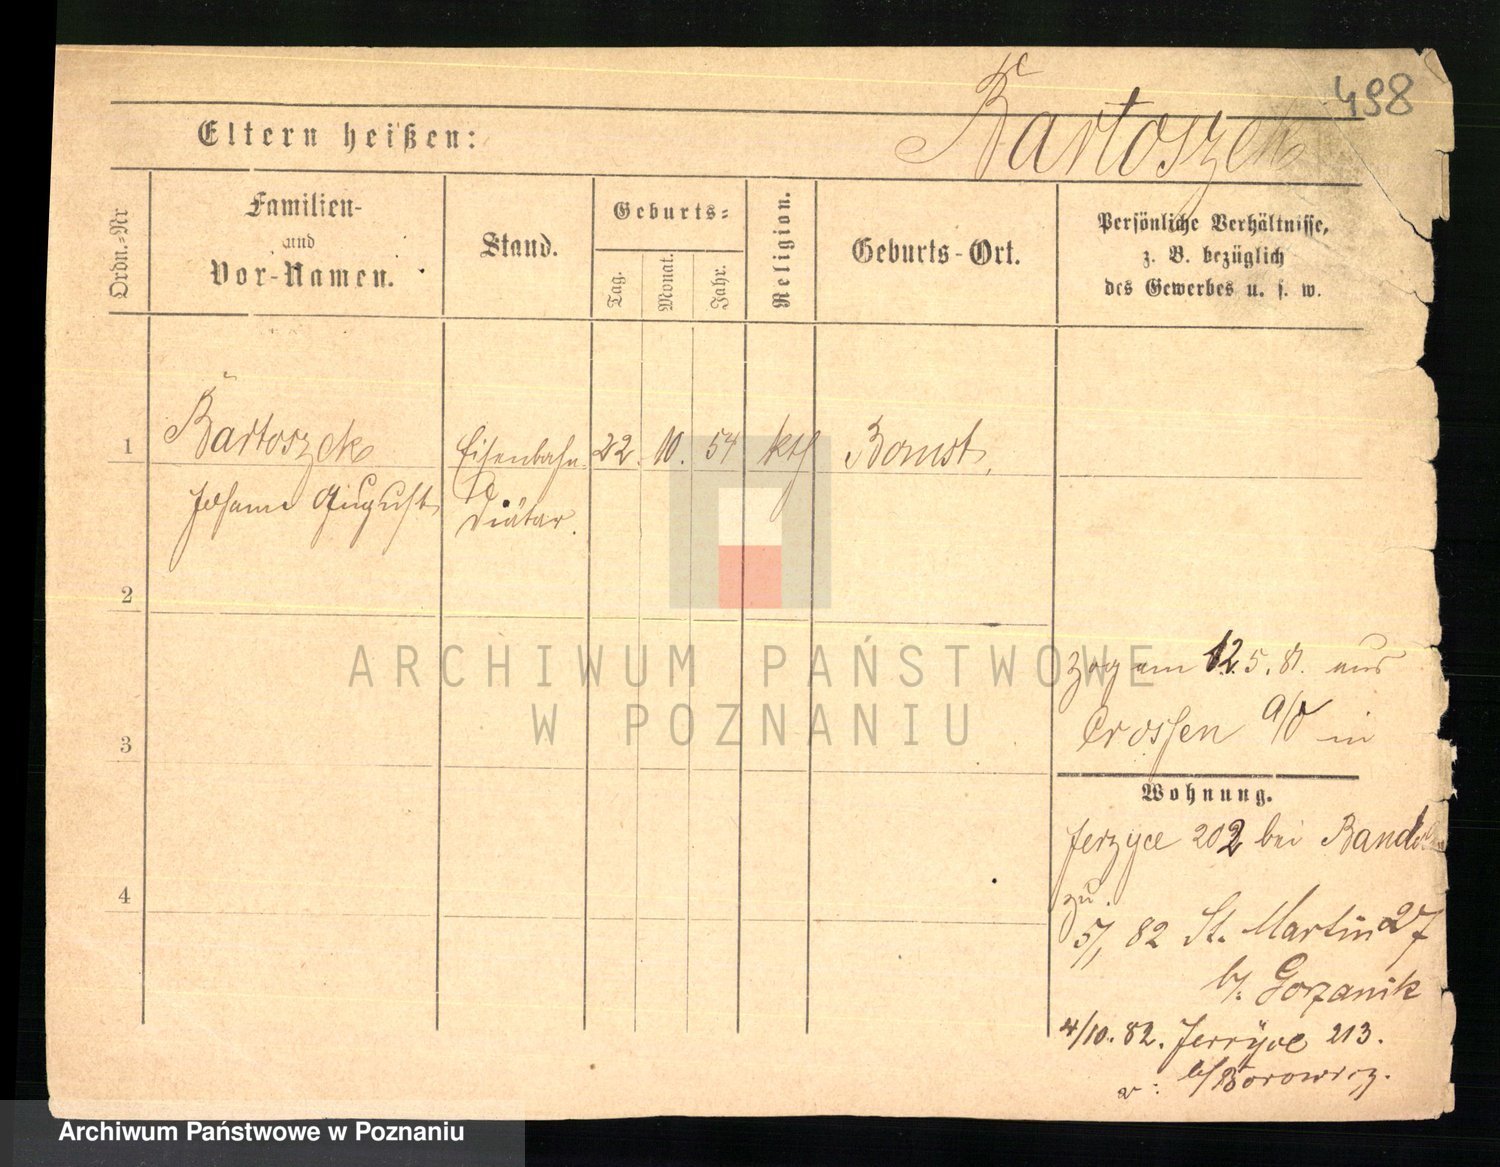 498
Bartoszek
Eltern heißen:
Ordn.-Nr
Familien-
und
Vor-Namen.
Stand.
Geburts-
Tag.
Monat.
Jahr.
Religion.
Geburts-Ort.
Persönliche Verhältnisse,
z. B. bezüglich
des Gewerbes u. s. w.
1
Bartoszek
Johann August
Eisenbahn-
Diätar.
22. 10. 54
kth
Bomst,
2
3
4
zog am 12.5.81. aus
Crossen a/O in
Wohnung.
Jerzyce 202 bei
zu.
5/, 82 St. Martin 27
b/. Gorzanik
4/10. 82. Jerzyce 213.
b/
ARCHIWUM PAŃSTWOWE
W POZNANIU
Archiwum Państwowe w Poznaniu